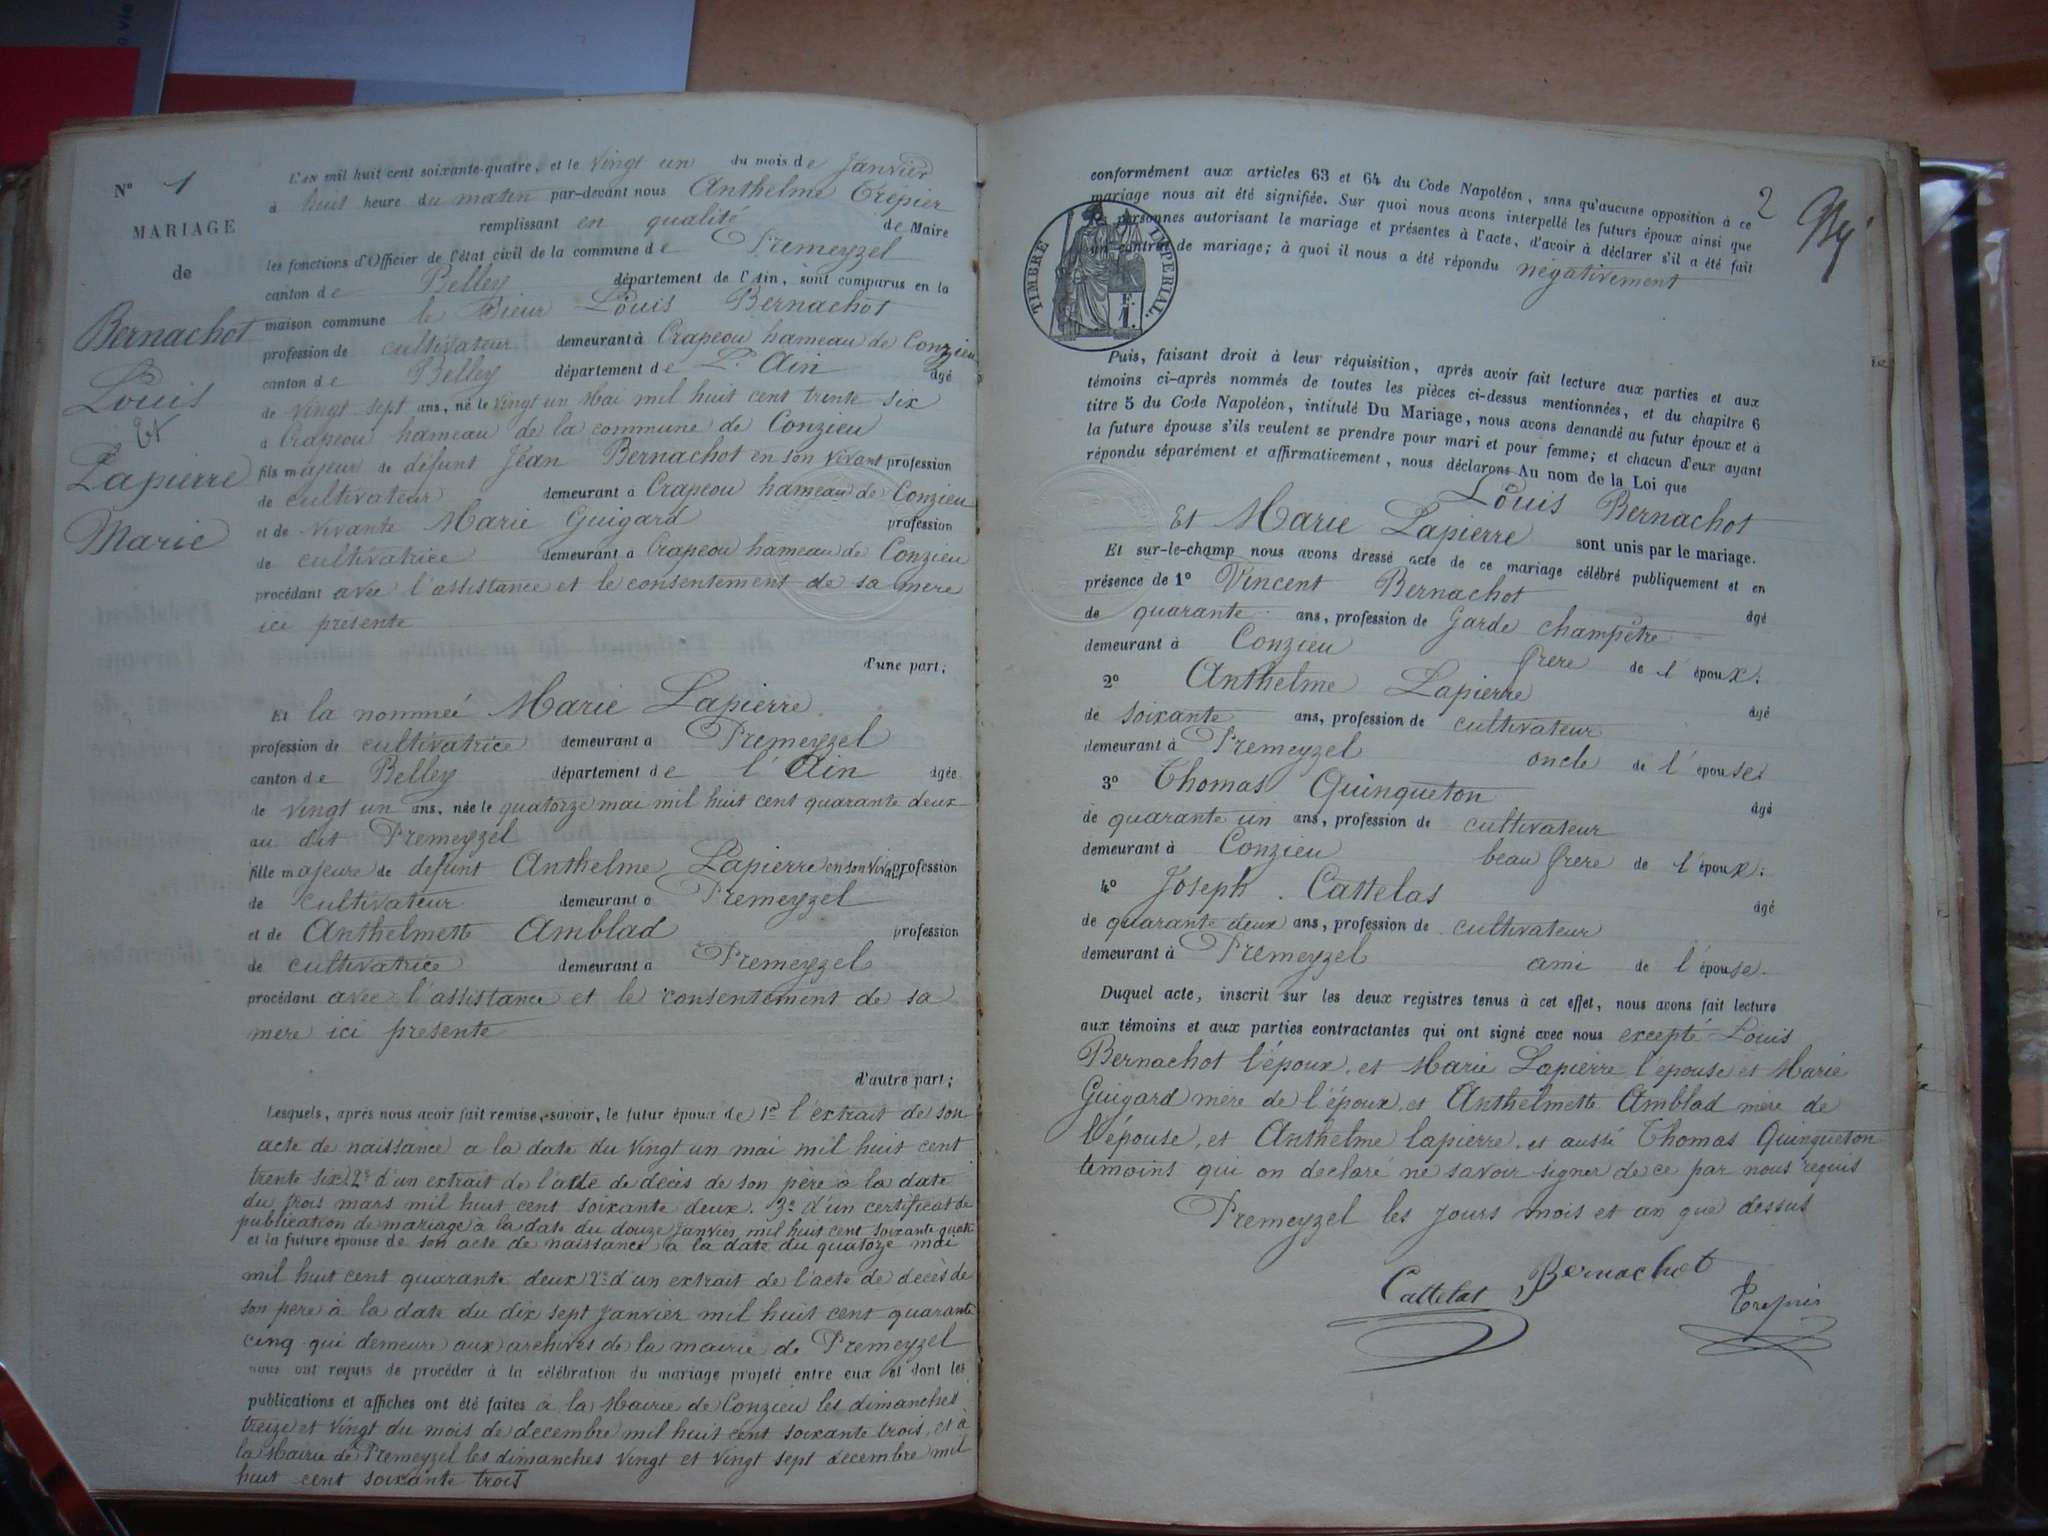 N° 1
MARIAGE
de
Bernachot
Louis
Et
Lapierre
Marie
L'AN mil huit cent soixante-quatre, et le Vingt un du mois de Janvier
à huit heure du matin par-devant nous Anthelme Trépier
remplissant en qualité de Maire
les fonctions d'Officier de l'état civil de la commune de Premeyzel
canton de Belley département de l'Ain, sont comparus en la
maison commune le Sieur Louis Bernachot
profession de cultivateur demeurant à Crapeou hameau de Conzieu
canton de Belley département de L'Ain âgé
de Vingt sept ans, né le Vingt un Mai mil huit cent trente six
à Crapeou hameau de la commune de Conzieu
fils majeur de défunt Jean Bernachot en son vivant profession
de cultivateur demeurant à Crapeou hameau de Conzieu
et de vivante Marie Guigard profession
de cultivatrice demeurant à Crapeou hameau de Conzieu
procédant avec l'assistance et le consentement de sa mere
ici présente
d'une part;
Et la nommeé Marie Lapierre
profession de cultivatrice demeurant à Premeyzel
canton de Belley département de l'Ain âgée
de vingt un ans, née le quatorze mai mil huit cent quarante deux
au dit Premeyzel
fille majeure de defunt Anthelme Lapierre en son vivant profession
de cultivateur demeurant à Premeyzel
et de Anthelmette Amblad profession
de cultivatrice demeurant à Premeyzel
procédant avec l'assistance et le consentement de sa
mere ici presente
d'autre part;
Lesquels, après nous avoir fait remise, savoir, le futur époux de 1° l'extrait de son
acte de naissance a la date du vingt un mai mil huit cent
trente six 2° d'un extrait de l'acte de décès de son père à la date
du trois mars mil huit cent soixante deux. 3° d'un certificat de
publication de mariage à la date du douze janvier mil huit cent soixante quatre
et la future épouse de son acte de naissance à la date du quatorze mai
mil huit cent quarante deux 2° d'un extrait de l'acte de decès de
son pere à la date du dix sept janvier mil huit cent quarante
cinq qui demeure aux archives de la mairie de Premeyzel
nous ont requis de procéder à la célébration du mariage projeté entre eux et dont les
publications et affiches ont été faites à la Mairie de Conzieu les dimanches
treize et vingt du mois de decembre mil huit cent soixante trois, et à
la Mairie de Premeyzel les dimanches vingt et vingt sept decembre mil
huit cent soixante trois
2
conformément aux articles 63 et 64 du Code Napoléon, sans qu'aucune opposition à ce
mariage nous ait été signifiée. Sur quoi nous avons interpellé les futurs époux ainsi que
les personnes autorisant le mariage et présentes à l'acte, d'avoir à déclarer s'il a été fait
un contrat de mariage; à quoi il nous a été répondu négativement
TIMBRE IMPÉRIAL.
F.
1.
Puis, faisant droit à leur réquisition, après avoir fait lecture aux parties et aux
témoins ci-après nommés de toutes les pièces ci-dessus mentionnées, et du chapitre 6
titre 5 du Code Napoléon, intitulé Du Mariage, nous avons demandé au futur époux et à
la future épouse s'ils veulent se prendre pour mari et pour femme; et chacun d'eux ayant
répondu séparément et affirmativement, nous déclarons Au nom de la Loi que
Louis Bernachot
Et Marie Lapierre sont unis par le mariage.
Et sur-le-champ nous avons dressé acte de ce mariage célébré publiquement et en
présence de 1° Vincent Bernachot
de quarante ans, profession de Garde champêtre âgé
demeurant à Conzieu frere de l'époux.
2° Anthelme Lapierre
de soixante ans, profession de cultivateur âgé
demeurant à Premeyzel oncle de l'épouse.
3° Thomas Quinqueton
de quarante un ans, profession de cultivateur âgé
demeurant à Conzieu beau frere de l'époux.
4° Joseph Cattelas
de quarante deux ans, profession de cultivateur âgé
demeurant à Premeyzel ami de l'épouse.
Duquel acte, inscrit sur les deux registres tenus à cet effet, nous avons fait lecture
aux témoins et aux parties contractantes qui ont signé avec nous excepté Louis
Bernachot l'époux, et Marie Lapierre l'epouse et Marie
Guigard mère de l'époux, et Anthelmette Amblad mere de
l'épouse, et Anthelme lapierre, et aussi Thomas Quinqueton
temoins qui on declaré ne savoir signer de ce par nous requis
Premeyzel les jours mois et an que dessus
Cattelas Bernachot
Trepier